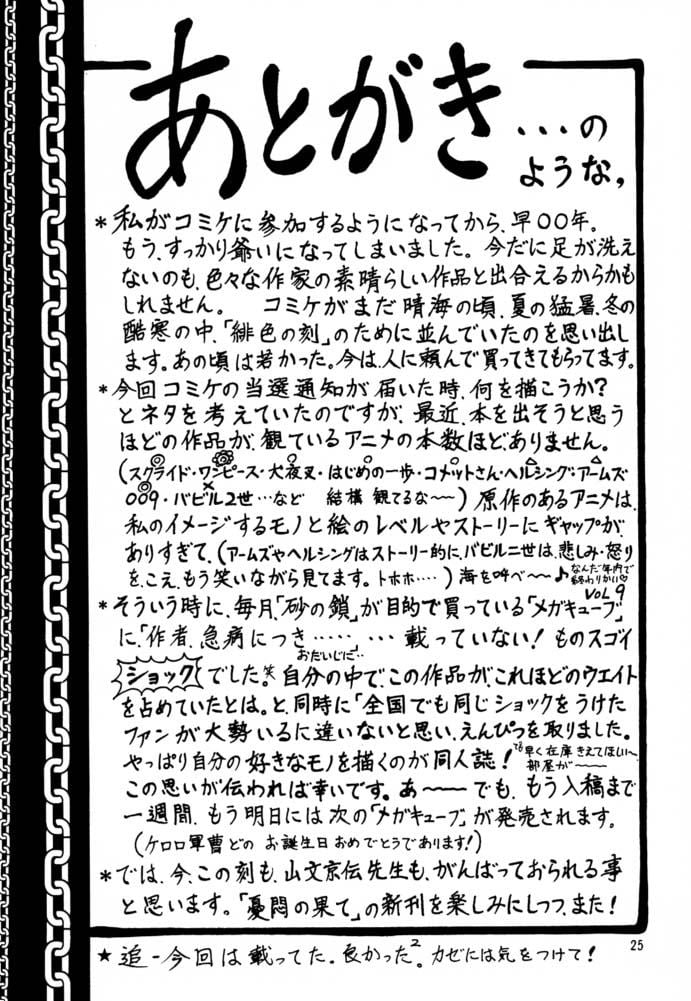 あとがき…の
ような,
*私がコミケに参加するようになってから、早〇〇年。
もう、すっかり爺いになってしまいました。今だに足が洗え
ないのも、色々な作家の素晴らしい作品と出合えるからかも
しれません。 コミケがまだ晴海の頃、夏の猛暑、冬の
酷寒の中、「緋色の刻」のために並んでいたのを思い出し
ます。あの頃は若かった。今は、人に頼んで買ってきてもらってます。
*今回コミケの当選通知が届いた時、何を描こうか?
とネタを考えていたのですが、最近、本を出そうと思う
ほどの作品が、観ているアニメの本数ほど、ありません。
(スクライド・ワンピース・犬夜叉・はじめの一歩・コメットさん・ヘルシング・アームズ
009・バビル2世…など 結構 観てるな〜〜)原作のあるアニメは、
私のイメージするモノと絵のレベルやストーリーにギャップが
ありすぎて、(アームズやヘルシングはストーリー的に、バビル二世は、悲しみ・怒り
を、こえ、もう笑いながら見てます。トホホ‥‥)海を呼べ〜〜♪
なんだ年内で
終わりかい♡
VOL9
*そういう時に、毎月「砂の鎖」が目的で買っている「メガキューブ」
に「作者、急病につき……」…載っていない!ものスゴイ
おだいじに‥
ショックでした。笑 自分の中で、この作品が、これほどのウエイト
を占めていたとは。と、同時に「全国でも同じショックをうけた
ファンが大勢いるに違いないと思い、えんぴつを取りました。
やっぱり自分の好きなモノを描くのが同人誌!
でも早く在庫きえてほしい〜
部屋が〜〜
この思いが伝われば幸いです。あ〜〜でも、もう入稿まで
一週間、もう明日には次の「メガキューブ」が発売されます。
(ケロロ軍曹どの お誕生日おめでとうであります!)
*では、今、この刻も、山文京伝先生も、がんばっておられる事
と思います。「憂悶の果て」の新刊を楽しみにしつつ、また!
25
★追-今回は載ってた。良かった²。カゼには気をつけて!